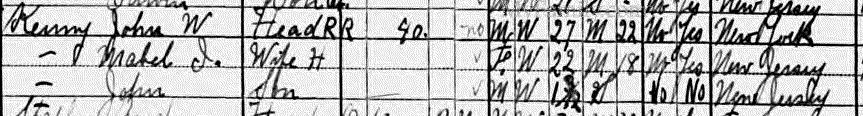 Kenny John W Head R R 40. no M W 27 M 22 No Yes New York
— Mabel J. Wife H ✓ F W 22 M 18 No Yes New Jersey
— John Son ✓ M W S No No New Jersey